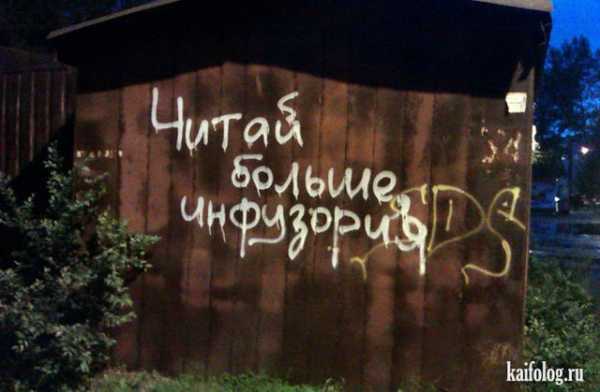 Читай
больше,
инфузория
kaifolog.ru